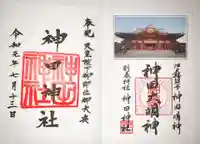 奉祝 天皇陛下御即位御大典
神田神社
令和元年七月十三日
江戸総鎮守 神田明神
神田大明神
神田神社